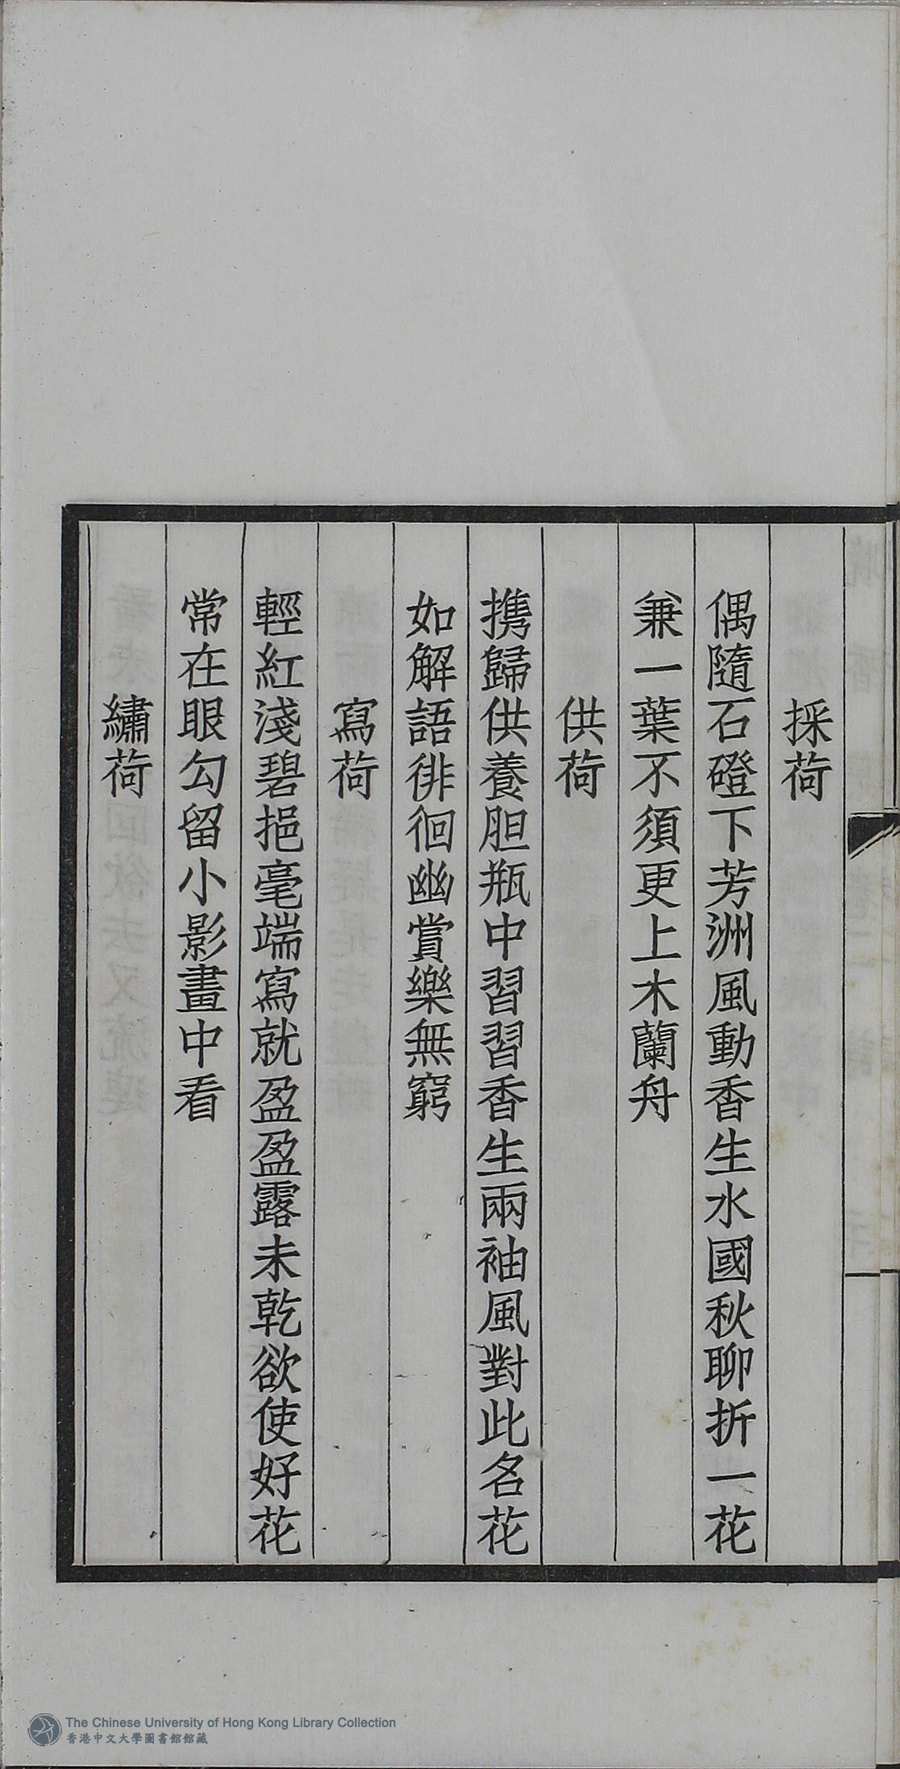 採荷
偶隨石磴下芳洲風動香生水國秋聊折一花
兼一葉不須更上木蘭舟
供荷
携歸供養胆瓶中習習香生兩袖風對此名花
如解語徘徊幽賞樂無窮
寫荷
輕紅淺碧挹毫端寫就盈盈露未乾欲使好花
常在眼勾留小影畫中看
繡荷
The Chinese University of Hong Kong Library Collection
香港中文大學圖書館館藏